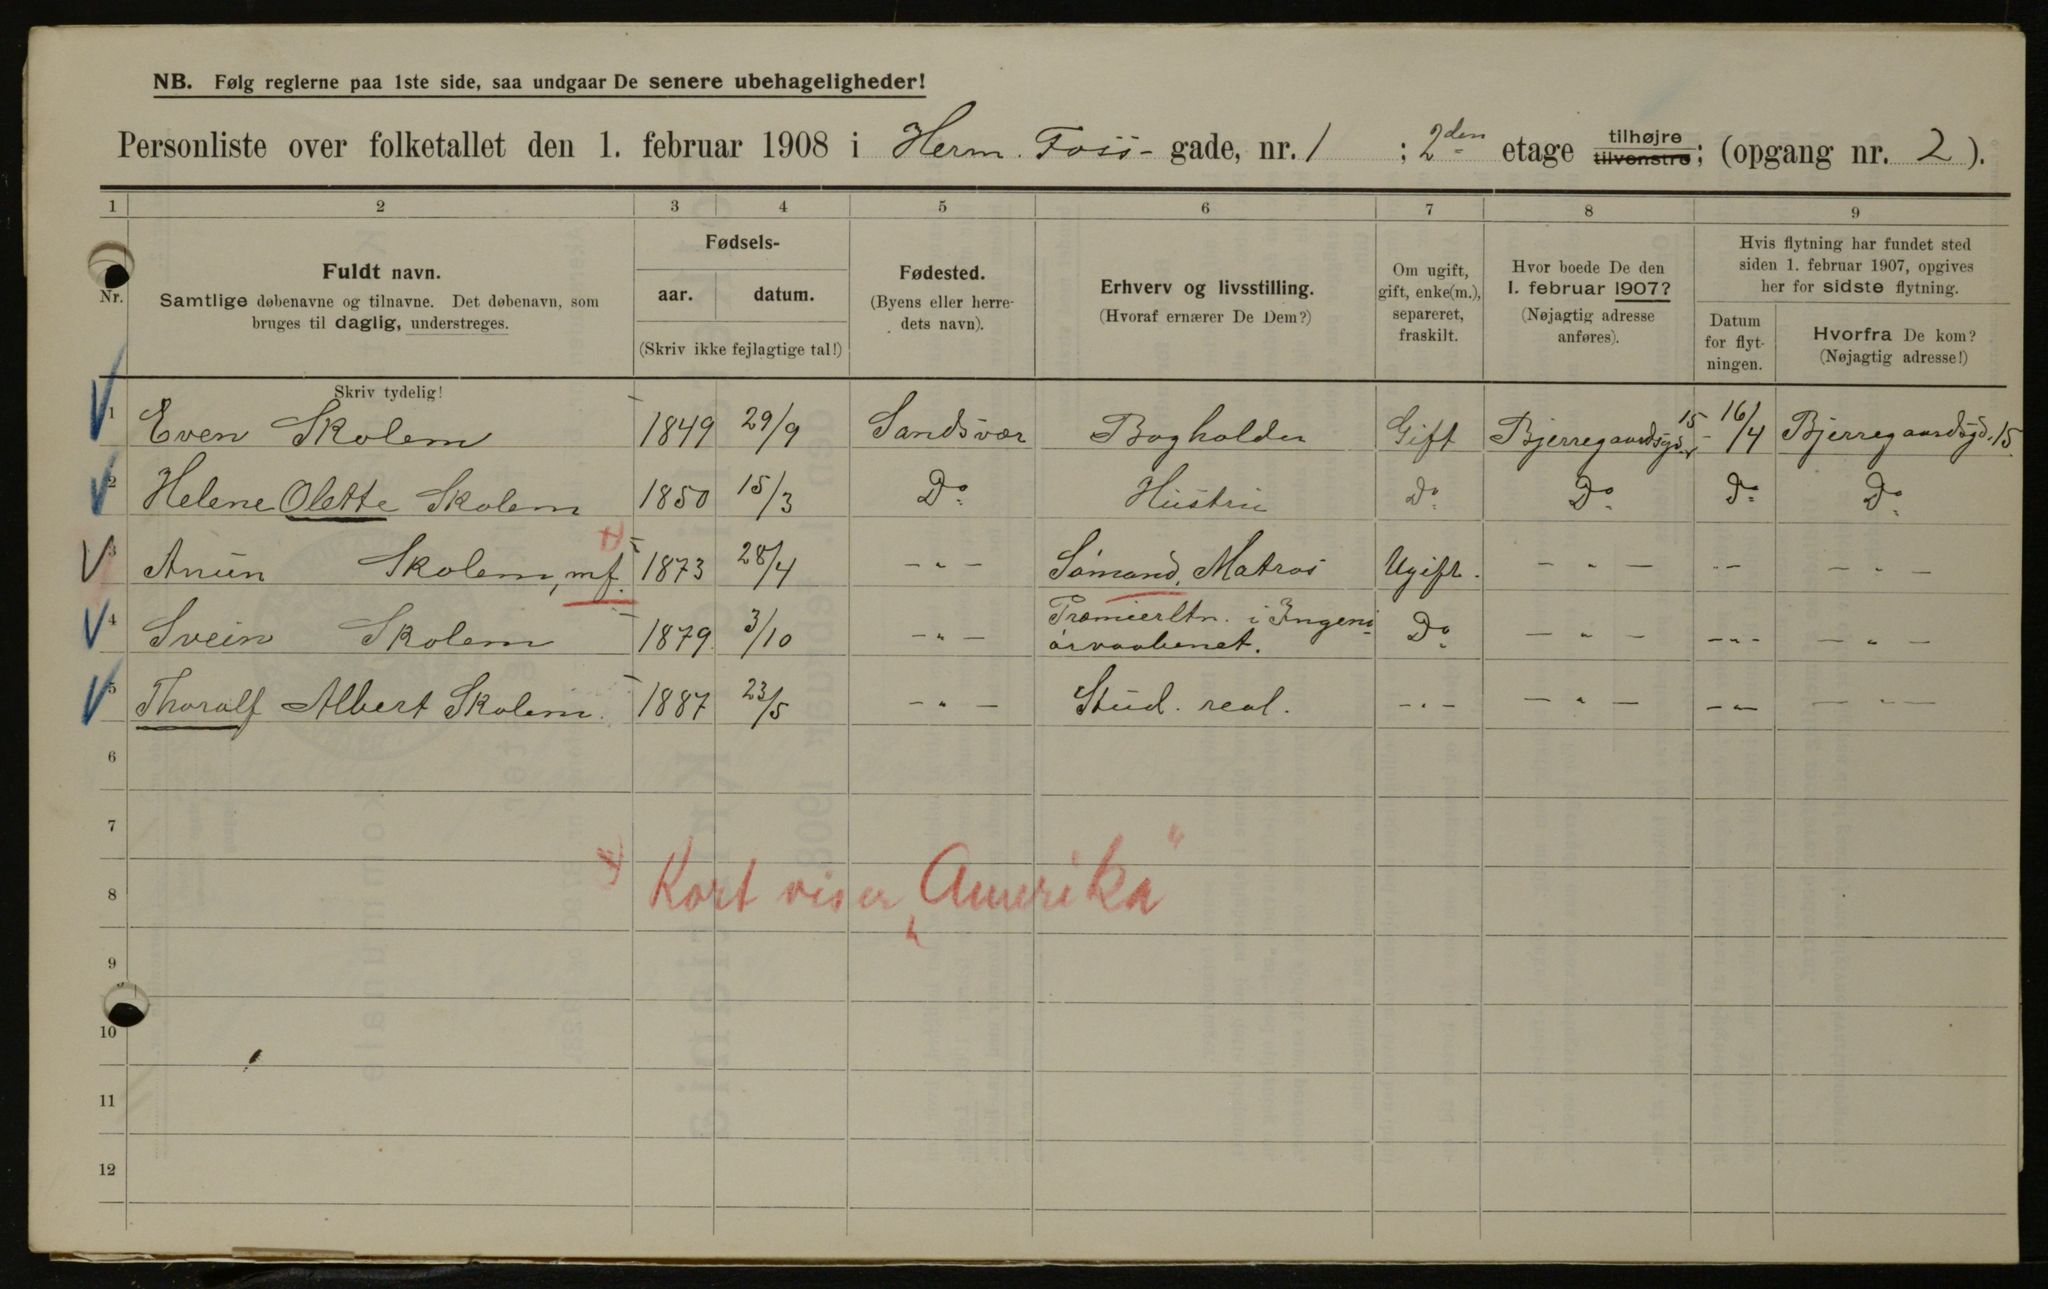 NB. Følg reglerne paa 1ste side, saa undgaar De senere ubehageligheder!
Personliste over folketallet den 1. februar 1908 i Herm. Foss- gade, nr. 1 ; 2den etage tilhøjre tilvenstre; (opgang nr. 2).
1 2 3 4 5 6 7 8 9
Nr.
Fuldt navn.
Samtlige døbenavne og tilnavne. Det døbenavn, som
bruges til daglig, understreges.
Fødsels-
aar. datum.
(Skriv ikke fejlagtige tal!)
Fødested.
(Byens eller herre-
dets navn).
Erhverv og livsstilling.
(Hvoraf ernærer De Dem?)
Om ugift,
gift, enke(m.),
separeret,
fraskilt.
Hvor boede De den
1. februar 1907?
(Nøjagtig adresse
anføres).
Hvis flytning har fundet sted
siden 1. februar 1907, opgives
her for sidste flytning.
Datum
for flyt-
ningen.
Hvorfra De kom?
(Nøjagtig adresse!)
Skriv tydelig!
1 Even Skolem 1849 29/9 Sandsvær Bogholder Gift Bjerregaardsgd. 15 - 16/4 Bjerregaardsgd. 15.
2 Helene Olette Skolem 1850 15/3 Do Hustru Do Do Do Do
3 Skolem, mf. 1873 28/4 - " - Sømand, Matros Ugift. - " - " - - " -
4 Svein Skolem 1879 3/10 - " - Præmierltn. i Ingeni-
ørvaabenet. Do - " - - " - - " -
5 Thoralf Albert Skolem. 1887 23/5 - " - Stud. real. - " - - " - - " - - " -
6
7
8 Kort viser "Amerika"
9
10
11
12